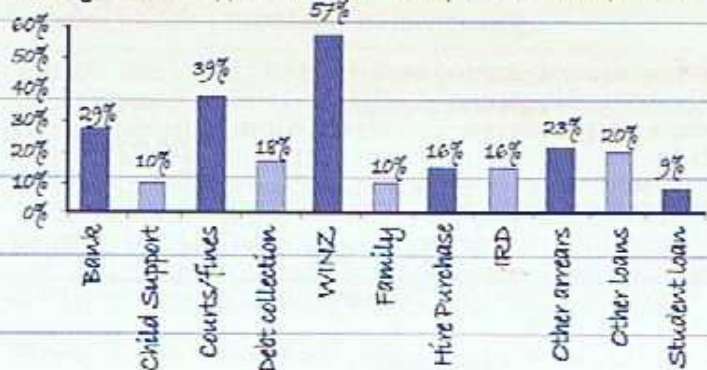 57%
60%
50%
39%
40%
29%
30%
23%
20%
18%
20%
16%
16%
10%
10%
10%
9%
0%
Bank
Child Support
Courts/fines
Debt collection
WINZ
Family
Hire Purchase
IRD
Other arrears
Other loans
Student loan